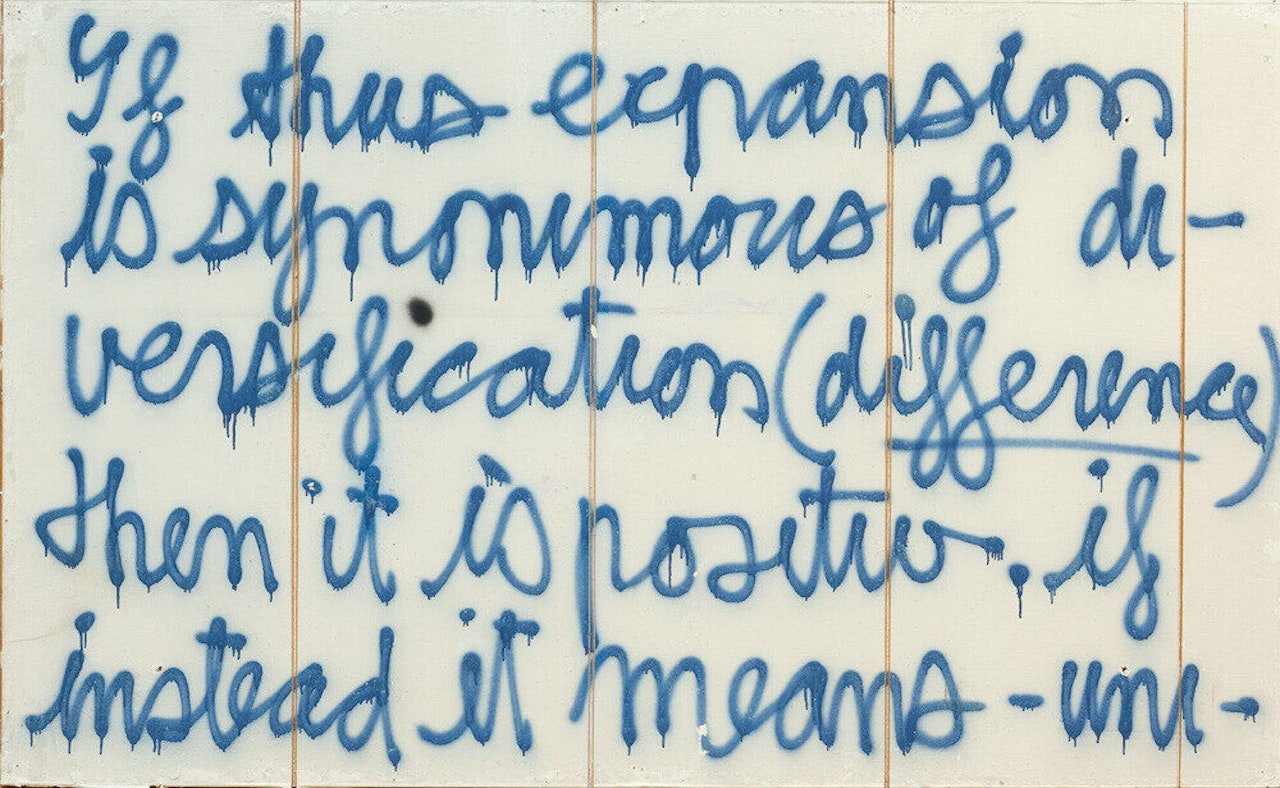 If thus expansion
is synonimous of di-
versification (difference)
then it is positiv. if
instead it means - uni-